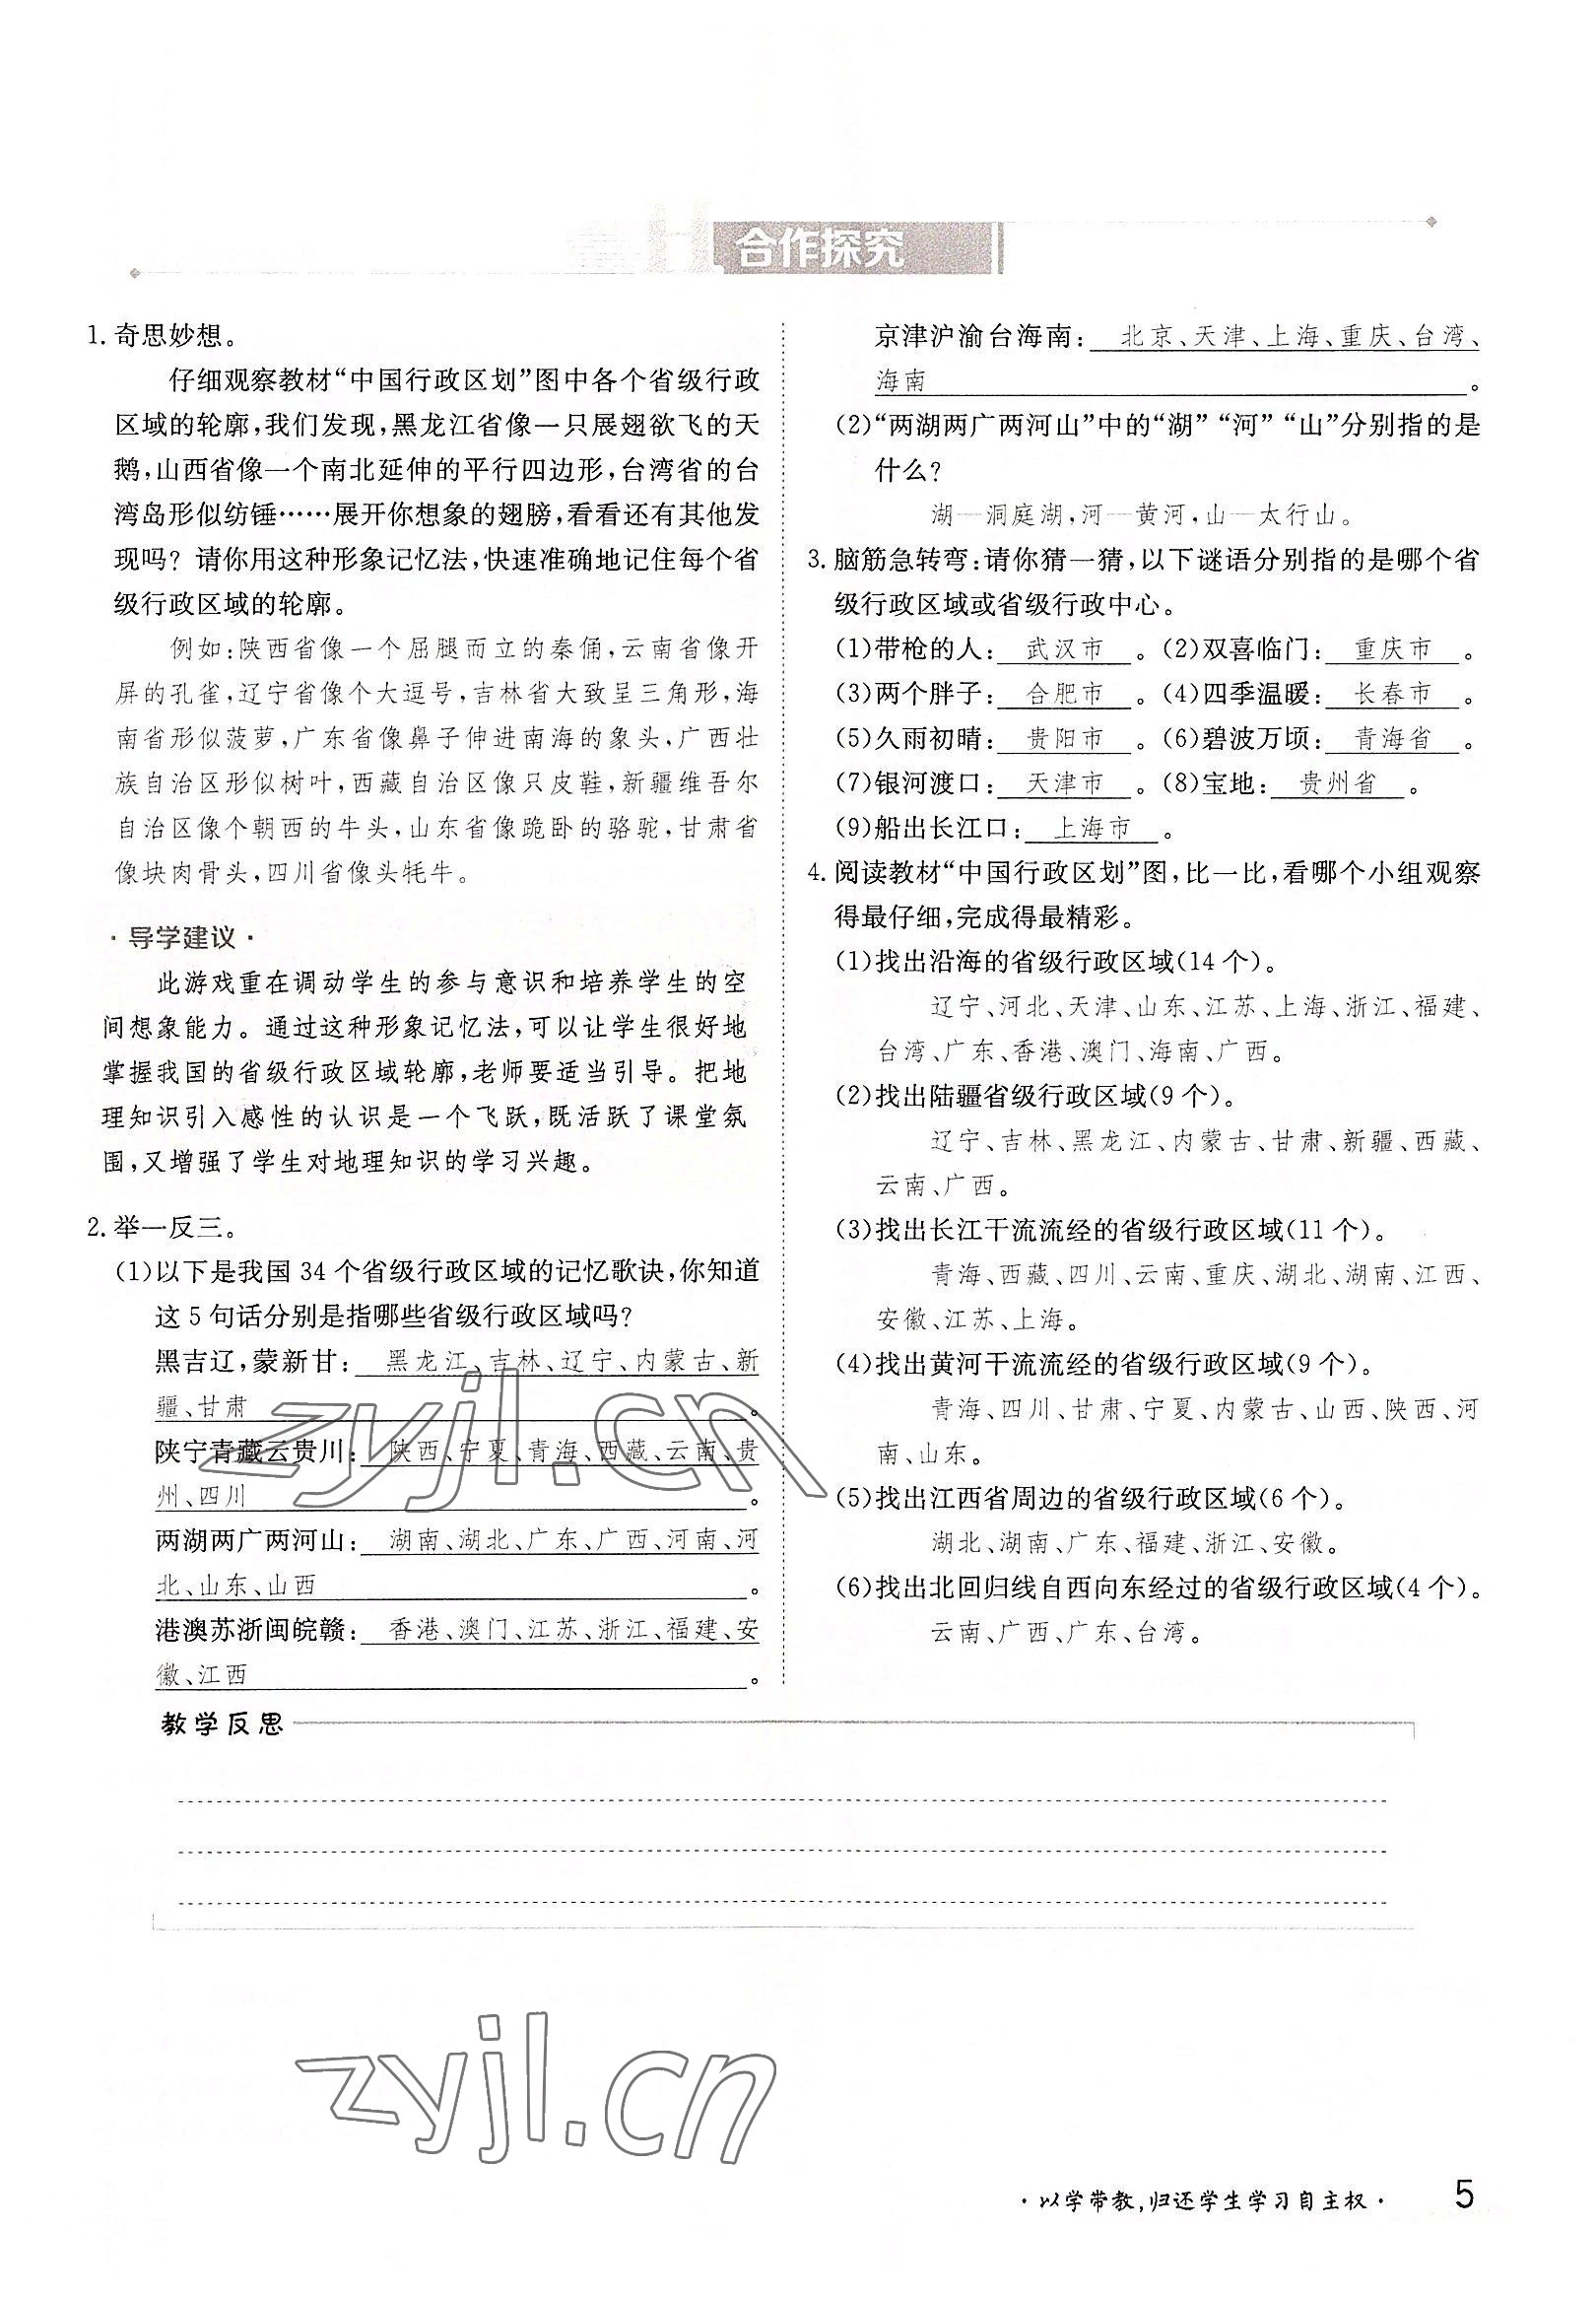 合作探究
1. 奇思妙想。
仔细观察教材“中国行政区划”图中各个省级行政
区域的轮廓,我们发现,黑龙江省像一只展翅欲飞的天
鹅,山西省像一个南北延伸的平行四边形,台湾省的台
湾岛形似纺锤……展开你想象的翅膀,看看还有其他发
现吗?请你用这种形象记忆法,快速准确地记住每个省
级行政区域的轮廓。
例如:陕西省像一个屈腿而立的秦俑,云南省像开
屏的孔雀,辽宁省像个大逗号,吉林省大致呈三角形,海
南省形似菠萝,广东省像鼻子伸进南海的象头,广西壮
族自治区形似树叶,西藏自治区像只皮鞋,新疆维吾尔
自治区像个朝西的牛头,山东省像跪卧的骆驼,甘肃省
像块肉骨头,四川省像头牦牛。
·导学建议·
此游戏重在调动学生的参与意识和培养学生的空
间想象能力。通过这种形象记忆法,可以让学生很好地
掌握我国的省级行政区域轮廓,老师要适当引导。把地
理知识引入感性的认识是一个飞跃,既活跃了课堂氛
围,又增强了学生对地理知识的学习兴趣。
2. 举一反三。
(1)以下是我国 34 个省级行政区域的记忆歌诀,你知道
这 5 句话分别是指哪些省级行政区域吗?
黑吉辽,蒙新甘: 黑龙江、吉林、辽宁、内蒙古、新
疆、甘肃 。
陕宁青藏云贵川: 陕西、宁夏、青海、西藏、云南、贵
州、四川 。
两湖两广两河山: 湖南、湖北、广东、广西、河南、河
北、山东、山西 。
港澳苏浙闽皖赣: 香港、澳门、江苏、浙江、福建、安
徽、江西 。
京津沪渝台海南: 北京、天津、上海、重庆、台湾、
海南 。
(2)“两湖两广两河山”中的“湖”“河”“山”分别指的是
什么?
湖—洞庭湖,河—黄河,山—太行山。
3. 脑筋急转弯:请你猜一猜,以下谜语分别指的是哪个省
级行政区域或省级行政中心。
(1)带枪的人: 武汉市 。(2)双喜临门: 重庆市 。
(3)两个胖子: 合肥市 。(4)四季温暖: 长春市 。
(5)久雨初晴: 贵阳市 。(6)碧波万顷: 青海省 。
(7)银河渡口: 天津市 。(8)宝地: 贵州省 。
(9)船出长江口: 上海市 。
4. 阅读教材“中国行政区划”图,比一比,看哪个小组观察
得最仔细,完成得最精彩。
(1)找出沿海的省级行政区域(14 个)。
辽宁、河北、天津、山东、江苏、上海、浙江、福建、
台湾、广东、香港、澳门、海南、广西。
(2)找出陆疆省级行政区域(9 个)。
辽宁、吉林、黑龙江、内蒙古、甘肃、新疆、西藏、
云南、广西。
(3)找出长江干流流经的省级行政区域(11 个)。
青海、西藏、四川、云南、重庆、湖北、湖南、江西、
安徽、江苏、上海。
(4)找出黄河干流流经的省级行政区域(9 个)。
青海、四川、甘肃、宁夏、内蒙古、山西、陕西、河
南、山东。
(5)找出江西省周边的省级行政区域(6 个)。
湖北、湖南、广东、福建、浙江、安徽。
(6)找出北回归线自西向东经过的省级行政区域(4 个)。
云南、广西、广东、台湾。
zyjl.cn
教学反思
zyjl.cn
·以学带教,归还学生学习自主权· 5